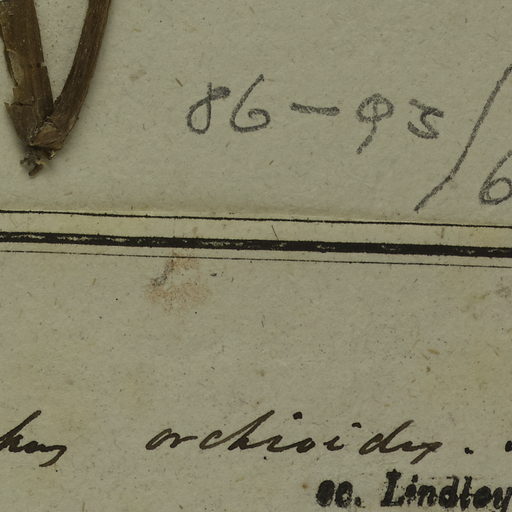 86-93/6
orchioides.
ec. Lindley